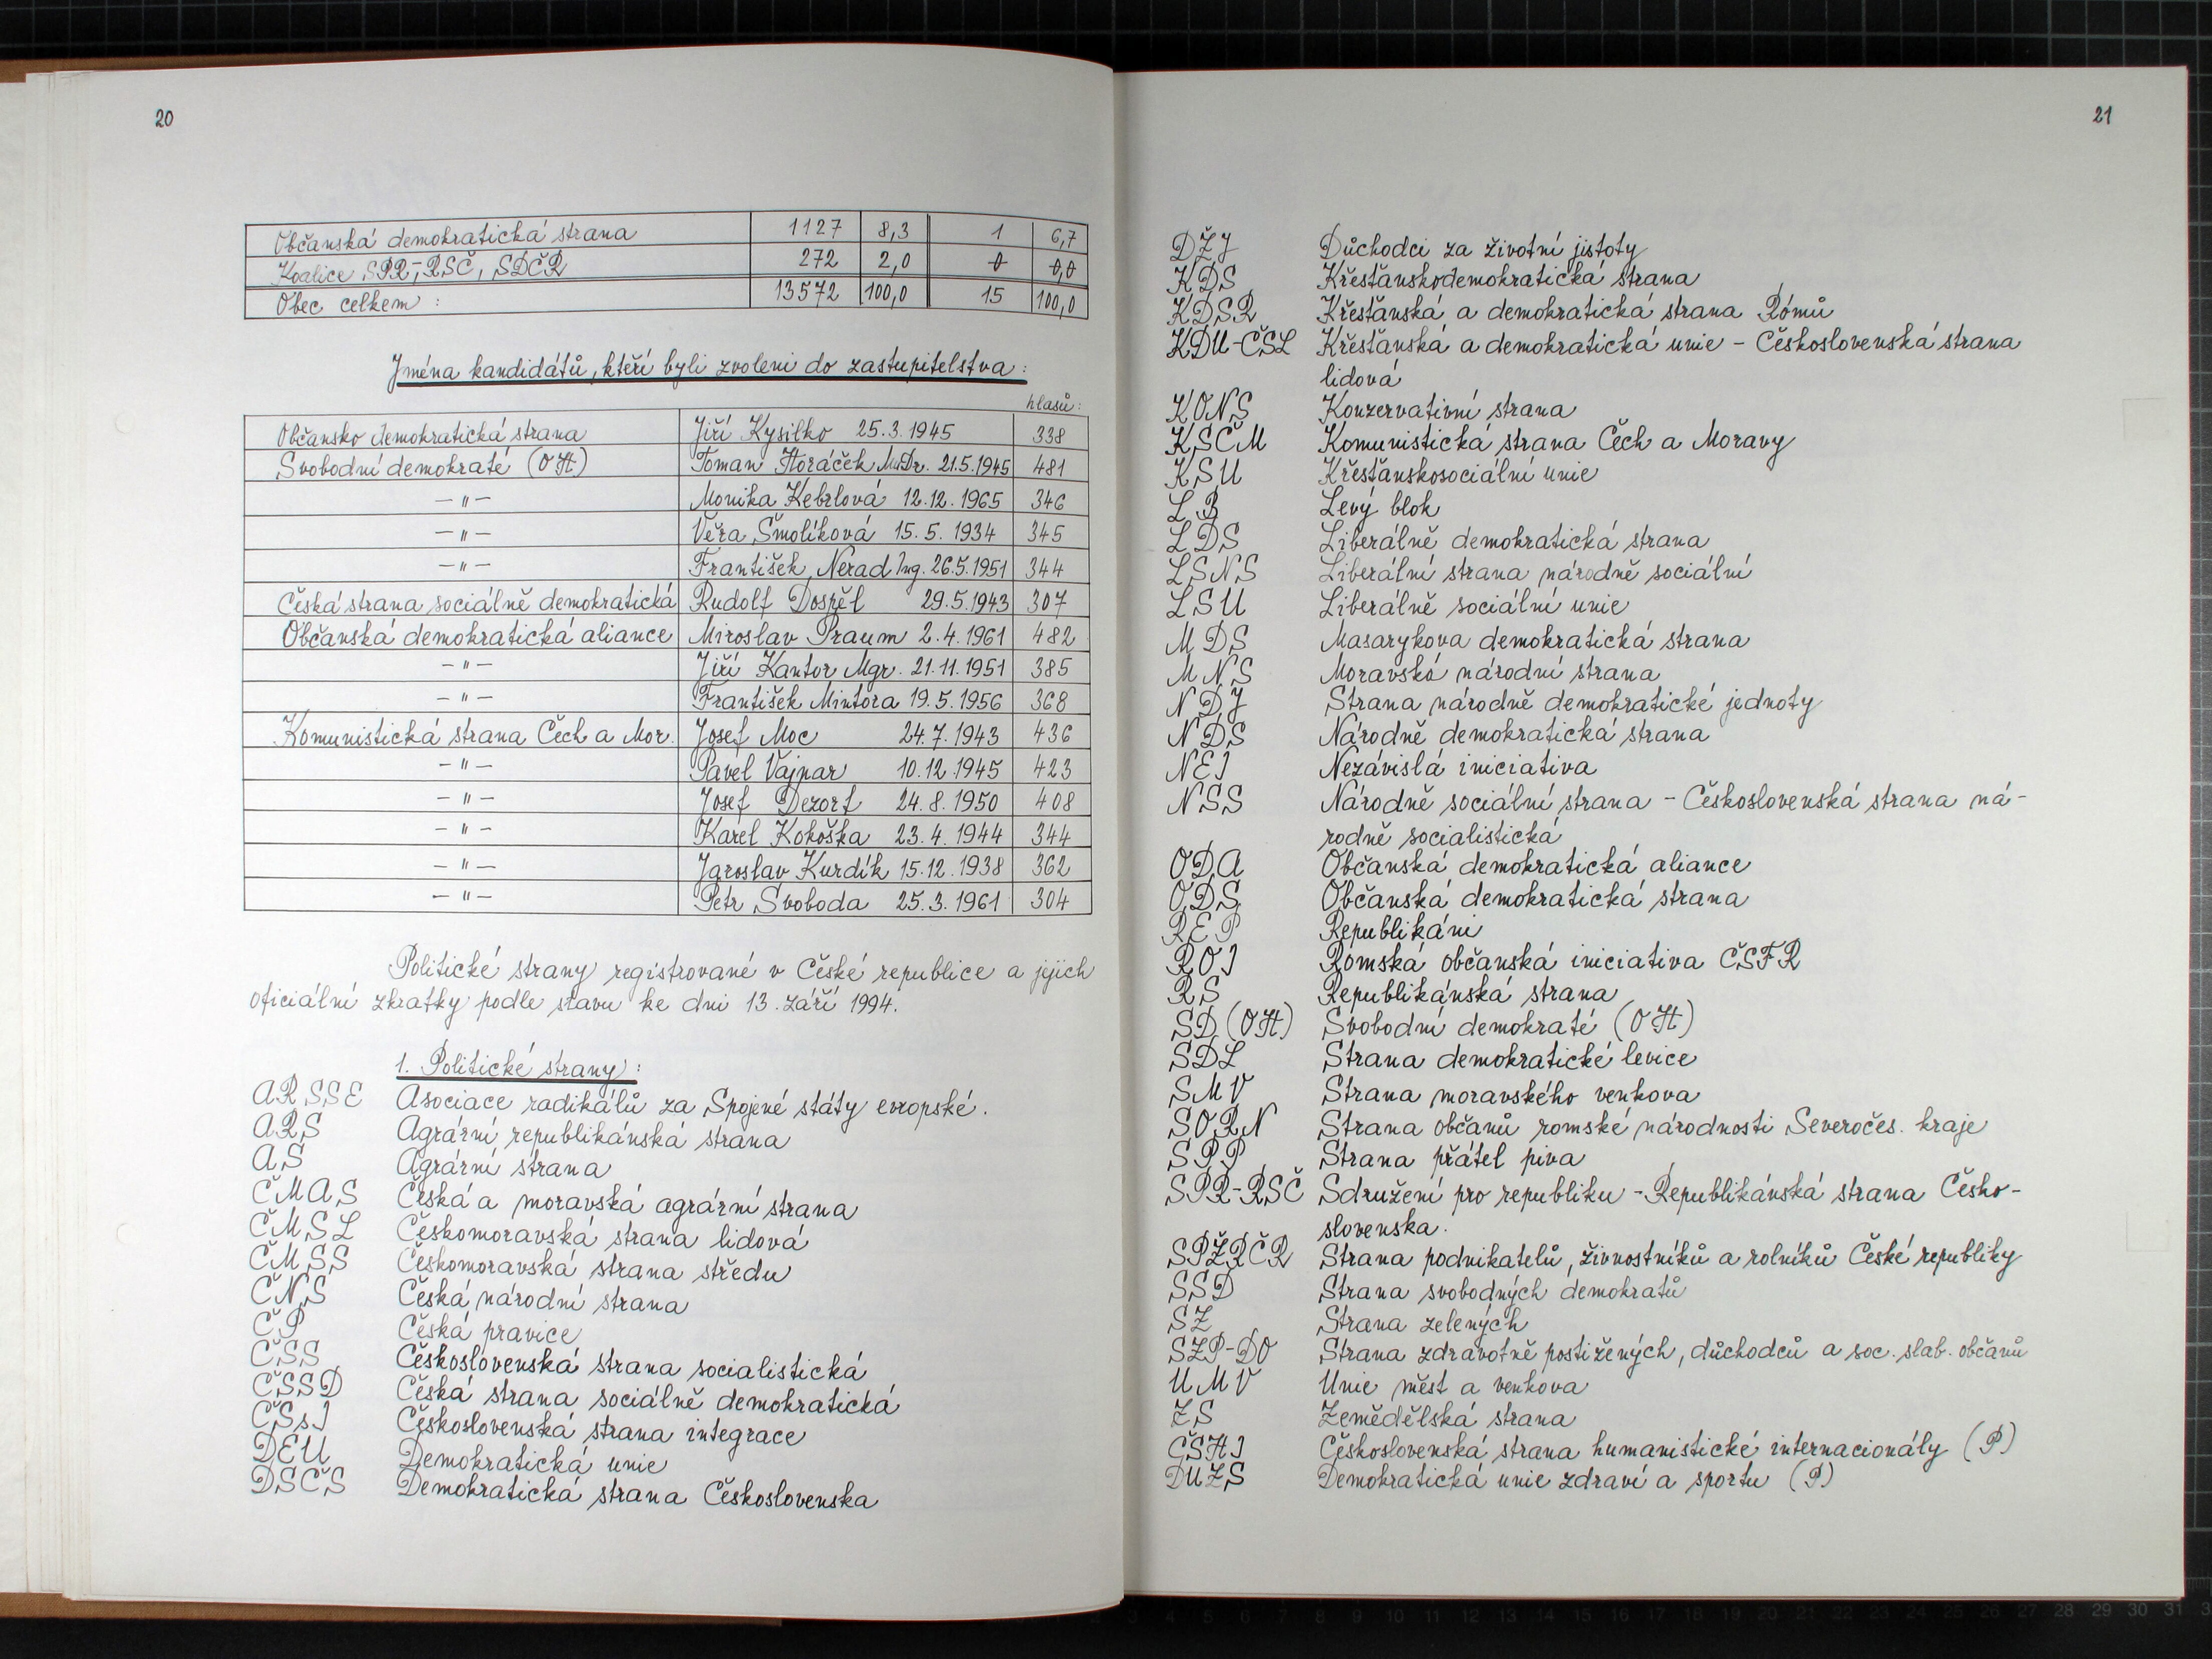 20
Občanská demokratická strana 1127 8,3 1 6,7
Koalice SPR-RSČ, SDČR 272 2,0 0 0,0
Obec celkem : 13572 100,0 15 100,0
Jména kandidátů, kteří byli zvoleni do zastupitelstva :
hlasů :
Občansko demokratická strana Jiří Kysilko 25.3.1945 338
Svobodní demokraté (OH) Toman Horáček MuDr. 21.5.1945 481
– " – Monika Kebrlová 12.12.1965 346
– " – Věra Šmolíková 15.5.1934 345
– " – František Nerad Ing. 26.5.1951 344
Česká strana sociálně demokratická Rudolf Dospěl 29.5.1943 307
Občanská demokratická aliance Miroslav Praum 2.4.1961 482
– " – Jiří Kantor Mgr. 21.11.1951 385
– " – František Mintora 19.5.1956 368
Komunistická strana Čech a Mor. Josef Moc 24.7.1943 436
– " – Pavel Vajnar 10.12.1945 423
– " – Josef Dezort 24.8.1950 408
– " – Karel Kokoška 23.4.1944 344
– " – Jaroslav Kurdík 15.12.1938 362
– " – Petr Svoboda 25.3.1961 304
Politické strany registrované v České republice a jejich
oficiální zkratky podle stavu ke dni 13. září 1994.
1. Politické strany :
ARSSE Asociace radikálů za Spojené státy evropské.
ARS Agrární republikánská strana
AS Agrární strana
ČMAS Česká a moravská agrární strana
ČMSL Českomoravská strana lidová
ČMSS Českomoravská strana středu
ČNS Česká národní strana
ČP Česká pravice
ČSS Československá strana socialistická
ČSSD Česká strana sociálně demokratická
ČSsI Československá strana integrace
DEU Demokratická unie
DSČS Demokratická strana Československa
21
DŽJ Důchodci za životní jistoty
KDS Křesťanskodemokratická strana
KDSR Křesťanská a demokratická strana Rómů
KDU-ČSL Křesťanská a demokratická unie - Československá strana
lidová
KONS Konzervativní strana
KSČM Komunistická strana Čech a Moravy
KSU Křesťanskosociální unie
LB Levý blok
LDS Liberálně demokratická strana
LSNS Liberální strana národně sociální
LSU Liberálně sociální unie
MDS Masarykova demokratická strana
MNS Moravská národní strana
NDJ Strana národně demokratické jednoty
NDS Národně demokratická strana
NEI Nezávislá iniciativa
NSS Národně sociální strana - Československá strana ná-
rodně socialistická
ODA Občanská demokratická aliance
ODS Občanská demokratická strana
REP Republikáni
ROI Rómská občanská iniciativa ČSFR
RS Republikánská strana
SD (OH) Svobodní demokraté (OH)
SDL Strana demokratické levice
SMV Strana moravského venkova
SORN Strana občanů romské národnosti Severočes. kraje
SPP Strana přátel piva
SPR-RSČ Sdružení pro republiku - Republikánská strana Česko-
slovenska.
SPŽRČR Strana podnikatelů, živnostníků a rolníků České republiky
SSD Strana svobodných demokratů
SZ Strana zelených
SZP-DO Strana zdravotně postižených, důchodců a soc. slab. občanů
UMV Unie měst a venkova
ZS Zemědělská strana
ČSHI Československá strana humanistické internacionály (P)
DUZS Demokratická unie zdraví a sportu (P)
3 4 5 6 7 8 9 10 11 12 13 14 15 16 17 18 19 20 21 22 23 24 25 26 27 28 29 30 31